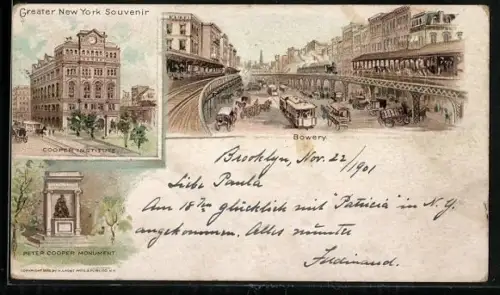 Greater New York Souvenir
COOPER INSTITUTE.
Bowery
PETER COOPER MONUMENT.
Brooklyn, Nov. 22/1901
Liebe Paula
Am 18ten glücklich mit "Patricia" in N.Y.
angekommen. Alles
Ferdinand.